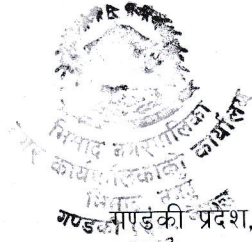 भिमाद नगरपालिका
नगर कार्यपालिकाको कार्यालय
गण्डकी प्रदेश,